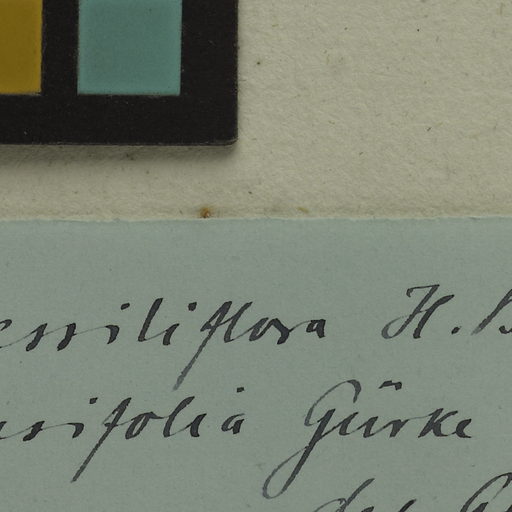 essiliflora H. B
ssifolia Gürke